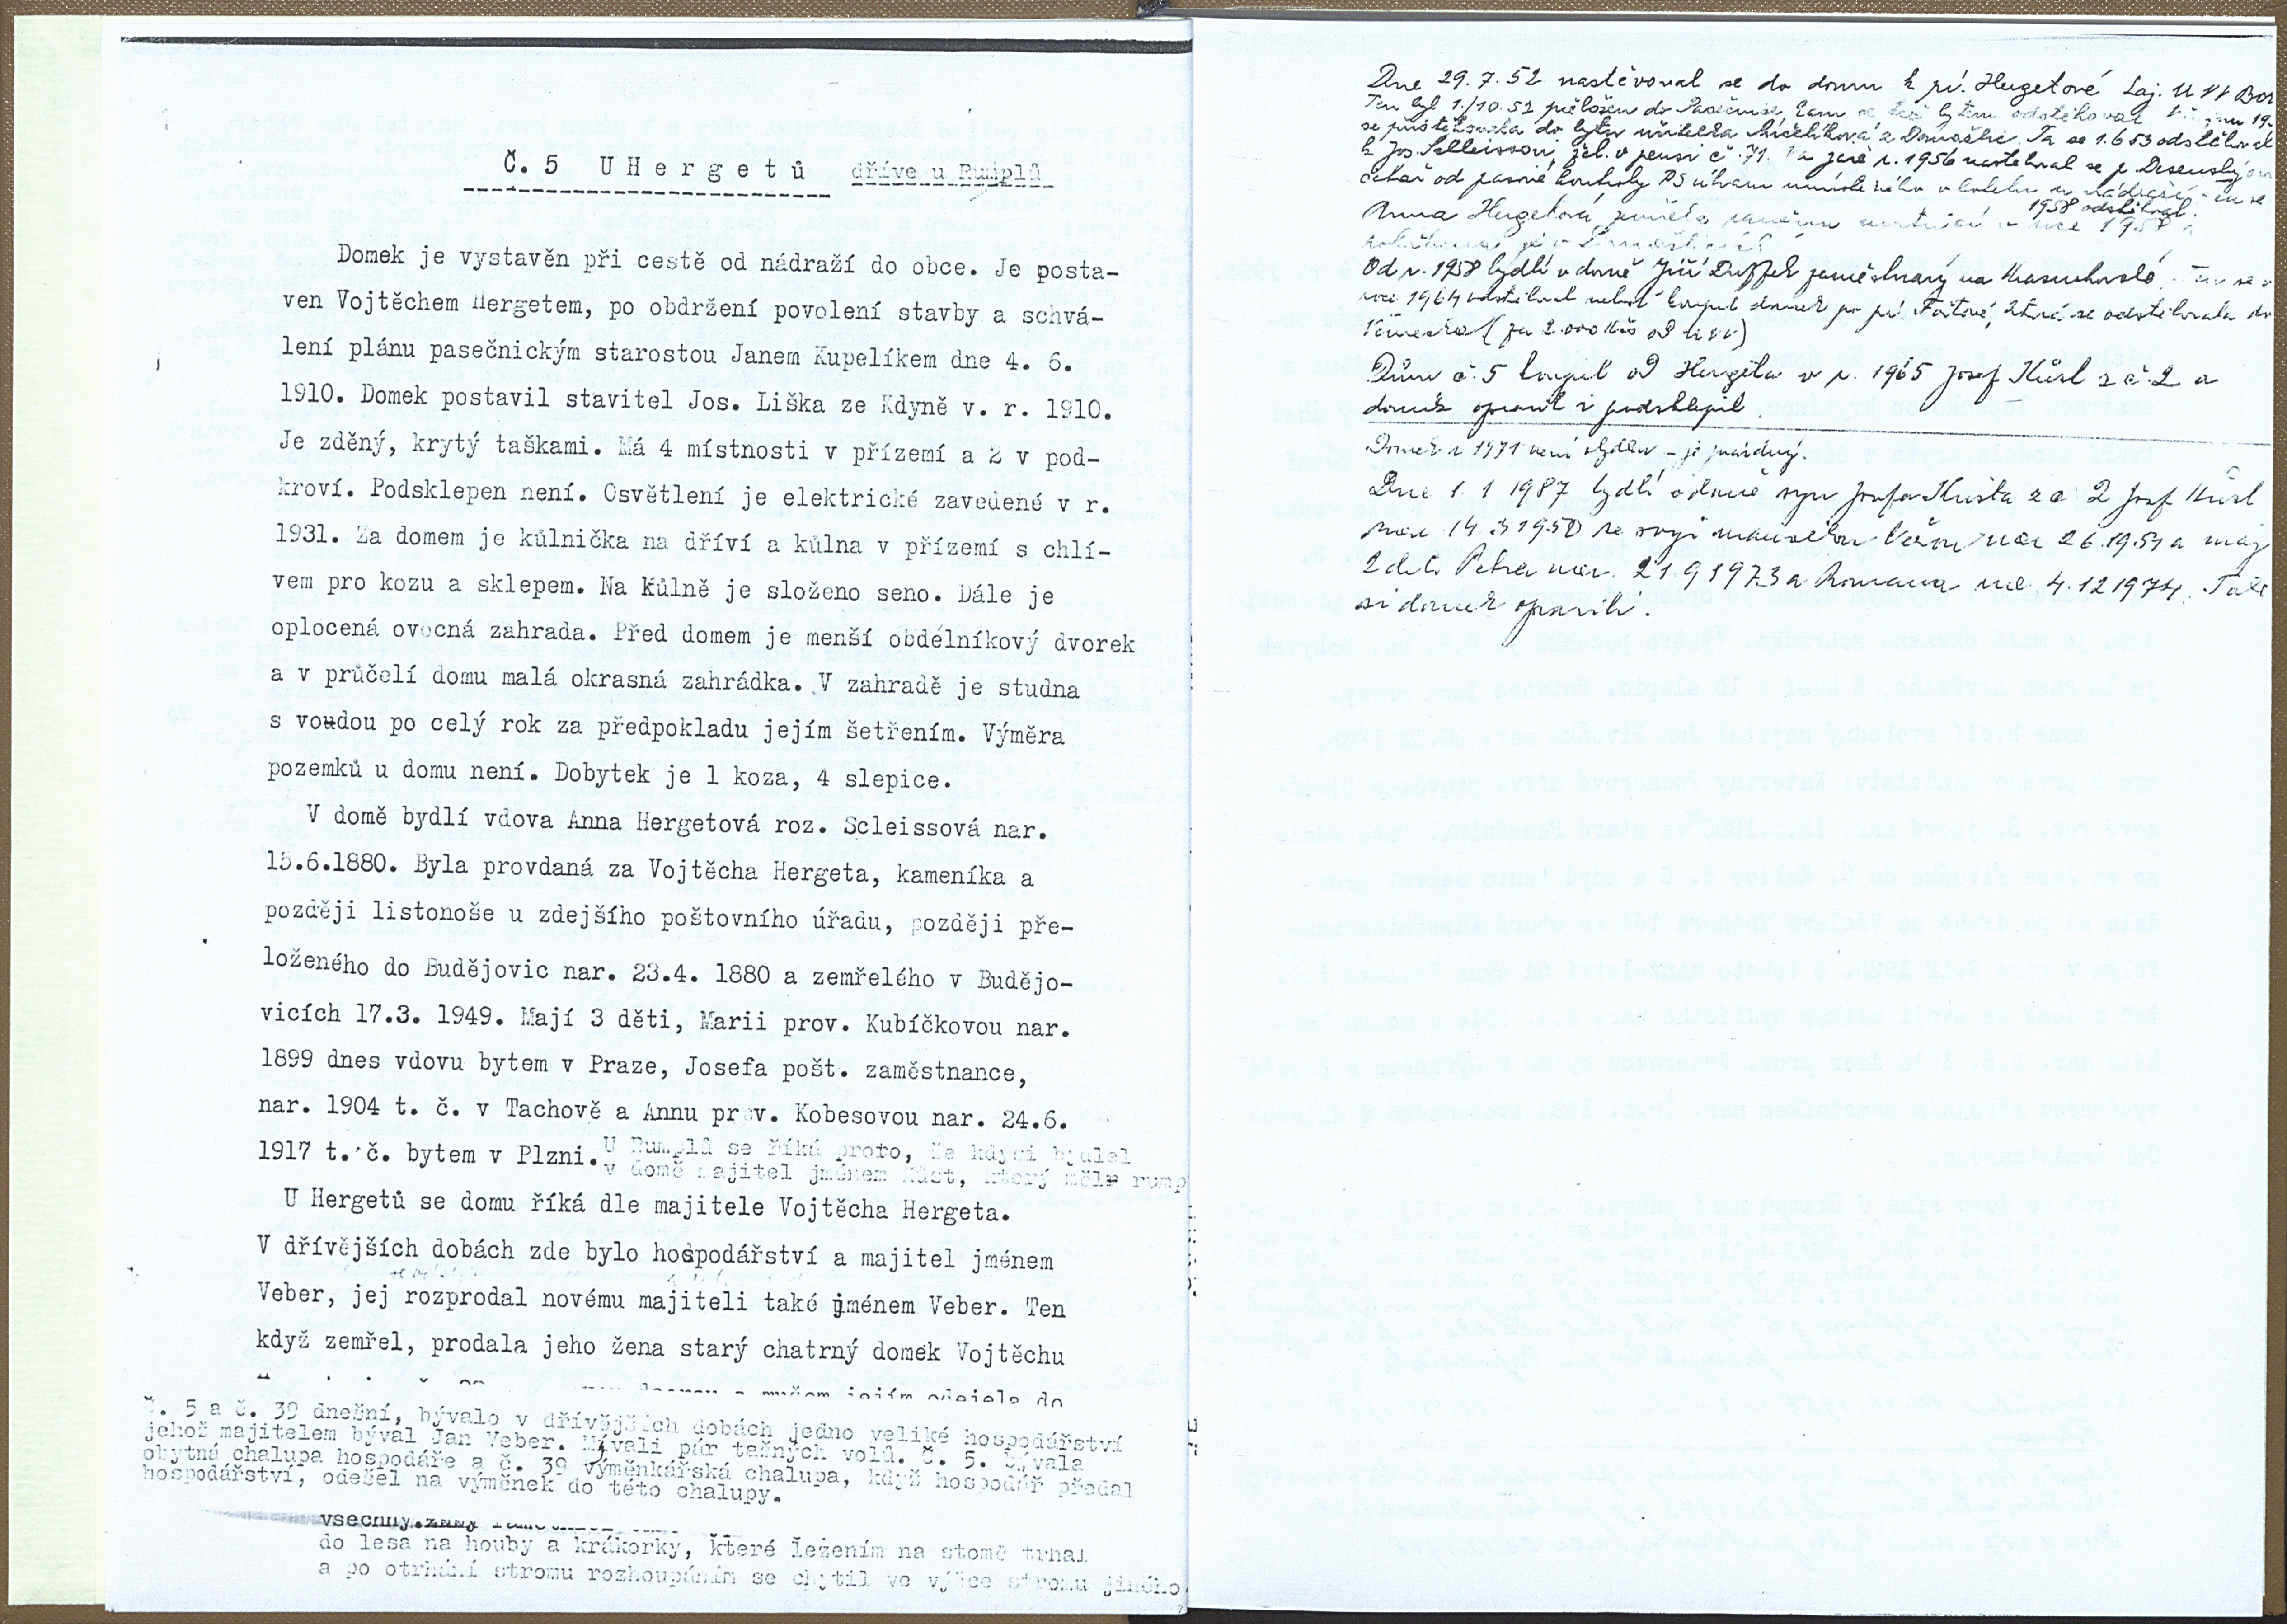 Č. 5 U Hergetů dříve u Rumplů
Domek je vystavěn při cestě od nádraží do obce. Je posta-
ven Vojtěchem Hergetem, po obdržení povolení stavby a schvá-
lení plánu pasečnickým starostou Janem Kupelíkem dne 4. 6.
1910. Domek postavil stavitel Jos. Liška ze Kdyně v. r. 1910.
Je zděný, krytý taškami. Má 4 místnosti v přízemí a 2 v pod-
kroví. Podsklepen není. Osvětlení je elektrické zavedené v r.
1931. Za domem je kůlnička na dříví a kůlna v přízemí s chlí-
vem pro kozu a sklepem. Na kůlně je složeno seno. Dále je
oplocená ovocná zahrada. Před domem je menší obdélníkový dvorek
a v průčelí domu malá okrasná zahrádka. V zahradě je studna
s voudou po celý rok za předpokladu jejím šetřením. Výměra
pozemků u domu není. Dobytek je 1 koza, 4 slepice.
V domě bydlí vdova Anna Hergetová roz. Scleissová nar.
15.6.1880. Byla provdaná za Vojtěcha Hergeta, kameníka a
později listonoše u zdejšího poštovního úřadu, později pře-
loženého do Budějovic nar. 23.4. 1880 a zemřelého v Budějo-
vicích 17.3. 1949. Mají 3 děti, Marii prov. Kubíčkovou nar.
1899 dnes vdovu bytem v Praze, Josefa pošt. zaměstnance,
nar. 1904 t. č. v Tachově a Annu prov. Kobesovou nar. 24.6.
1917 t. č. bytem v Plzni. U Rumplů se říká proto, že kdysi bydlel
v domě majitel jménem který měl rump
U Hergetů se domu říká dle majitele Vojtěcha Hergeta.
V dřívějších dobách zde bylo hospodářství a majitel jménem
Veber, jej rozprodal novému majiteli také jménem Veber. Ten
když zemřel, prodala jeho žena starý chatrný domek Vojtěchu
a mužem jejím odejela do
Č. 5 a č. 39 dnešní, bývalo v dřívějších dobách jedno veliké hospodářství
jehož majitelem býval Jan Veber. Mívali pár tažných volů. Č. 5. bývala
obytná chalupa hospodáře a č. 39 výměnkářská chalupa, když hospodář předal
hospodářství, odešel na výměnek do této chalupy.
všechny
do lesa na houby a krákorky, které ležením na stomě trhal
a po otrhání stromu rozhoupáním se chytil ve výšce stromu jiného
Dne 29.7.52 nastěvoval se do domu k pí. Hergetové
Ten byl 1./10.52 přeložen do Pasečnice, kam se též bytem odstěhoval.
se přistěhovala do bytu učitelka z Domažlic. Ta se 1.6 53 odstěhoval
k Jos. Scleissovi, žel. v pensi č. 71. Na jaře r. 1956 nastěhoval se p.
od pasové kontroly v hotelu u nádraží
1958 odstěhoval.
Anna Hergetová zemřela v roce 1957
Od r. 1958 bydlí v domě Jiří zaměstnaný na Ten se v
roce 1964 odstěhoval neboť koupil domek po pí. Fořtové, která se odstěhovala do
(za 2.000 Kčs
Dům č. 5 koupil od Hergeta v r. 1965 Josef Kůsl z č. 2 a
domek opravil i podsklepil
Domek r 1971 není obydlen - je prázdný.
Dne 1. 1 1987 bydlí v domě syn Josefa z č 2 Josef Kůsl
nar. 14. 3 1950 se svojí manželkou Věrou nar 26.19.51 a mají
2 děti Petra nar. 21.9 1973 a Romana nar 4.12 1974. Také
si domek opravili.